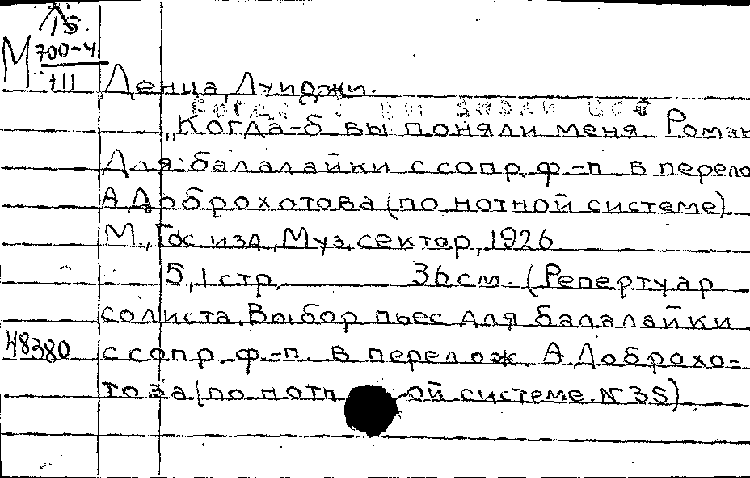 15.
М 700-4
+11
Денца, Луиджи.
„Когда-б вы поняли меня. Роман
Для балалайки с сопр. ф.-п. в перело
А. Доброхотова (по нотной системе)
М., Гос. изд., Муз. сектор, 1926
5,1 стр. 36 см. (Репертуар
солиста. Выбор пьес для балалайки
48380 с сопр. ф.-п. в перелож. А. Доброхо-
това (по нотной системе. N 35)